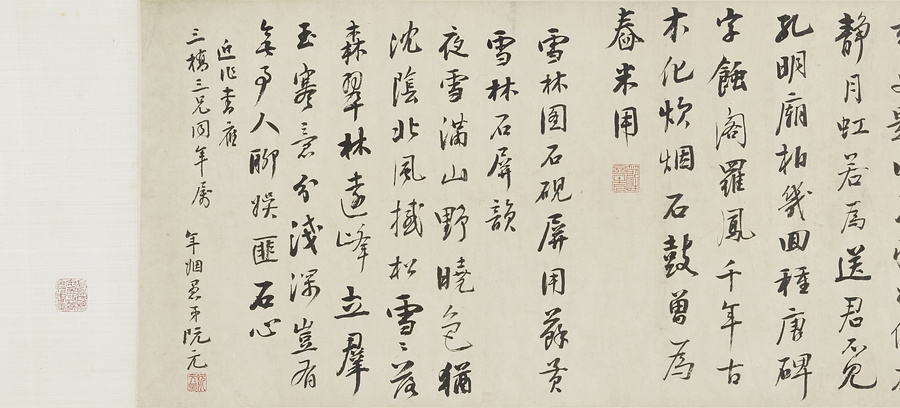 靜月虹若為送君不覓
孔明廟柏幾回種唐碑
字蝕閣羅鳳千年古
木化炊烟石鼓曾為
舂米用
雪林圖石硯屏用蘇黃
雪林石屏韻
夜雪滿山野曉色猶
沈陰北風撼松雪雪落
森翠林遠峰立羣
玉寒意分淺深豈有
無事人聊娛匪石心
近作書應
三橋三兄同年屬
年姻愚弟阮元